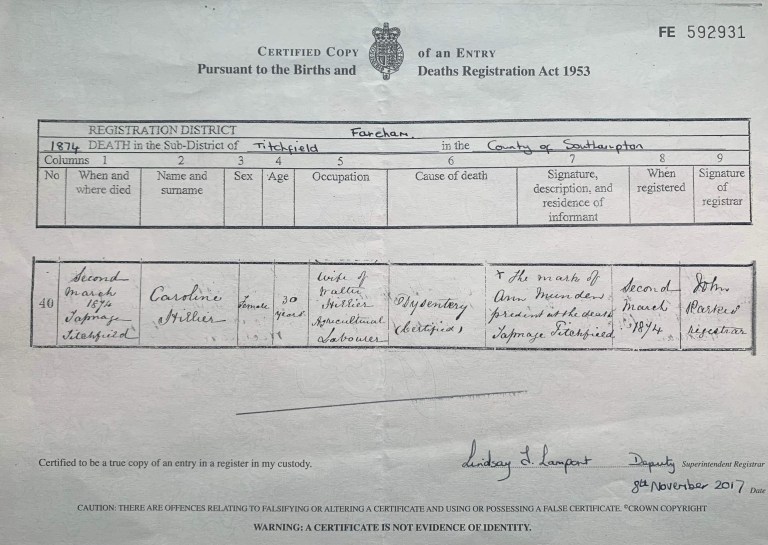 FE 592931
CERTIFIED COPY of an ENTRY
Pursuant to the Births and Deaths Registration Act 1953
REGISTRATION DISTRICT Fareham.
1874 DEATH in the Sub-District of Titchfield in the County of Southampton
Columns 1 2 3 4 5 6 7 8 9
No When and where died Name and surname Sex Age Occupation Cause of death Signature, description, and residence of informant When registered Signature of registrar
40
Second
March
1874
Tapnage
Titchfield
Caroline
Hillier
Female
30
years
Wife of
Walter
Hillier
Agricultural
Labourer
Dysentery
Certified
X The mark of
Ann Munden
present at the death
Tapnage Titchfield
Second
March
1874
John
Parker
registrar
Certified to be a true copy of an entry in a register in my custody.
Lindsay J. Lampart Deputy Superintendent Registrar
8th November 2017 Date
CAUTION: THERE ARE OFFENCES RELATING TO FALSIFYING OR ALTERING A CERTIFICATE AND USING OR POSSESSING A FALSE CERTIFICATE. ©CROWN COPYRIGHT
WARNING: A CERTIFICATE IS NOT EVIDENCE OF IDENTITY.